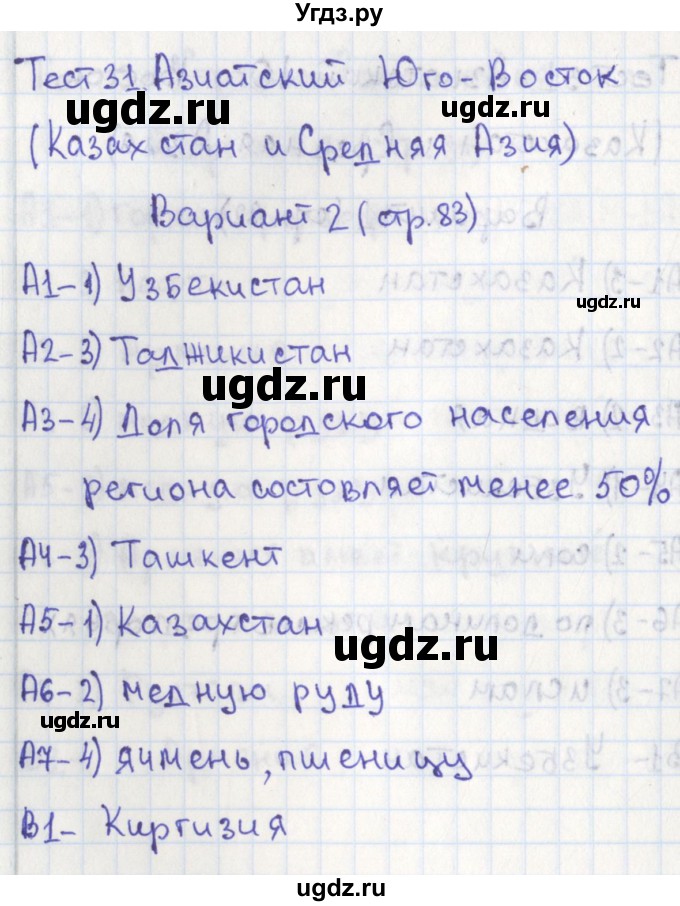 Угдз.ру
Тест 31. Азиатский Юго-Восток
ugdz.ru
(Казахстан и Средняя Азия)
Вариант 2 (стр. 83)
А1-1) Узбекистан
ugdz.ru
А2-3) Таджикистан
ugdz.ru
А3-4) Доля городского населения
региона состовляет менее 50%
А4-3) Ташкент
А5-1) Казахстан
ugdz.ru
А6-2) медную руду
ugdz.ru
А7-4) ячмень, пшеницу
ugdz.ru
В1- Киргизия
ugdz.ru